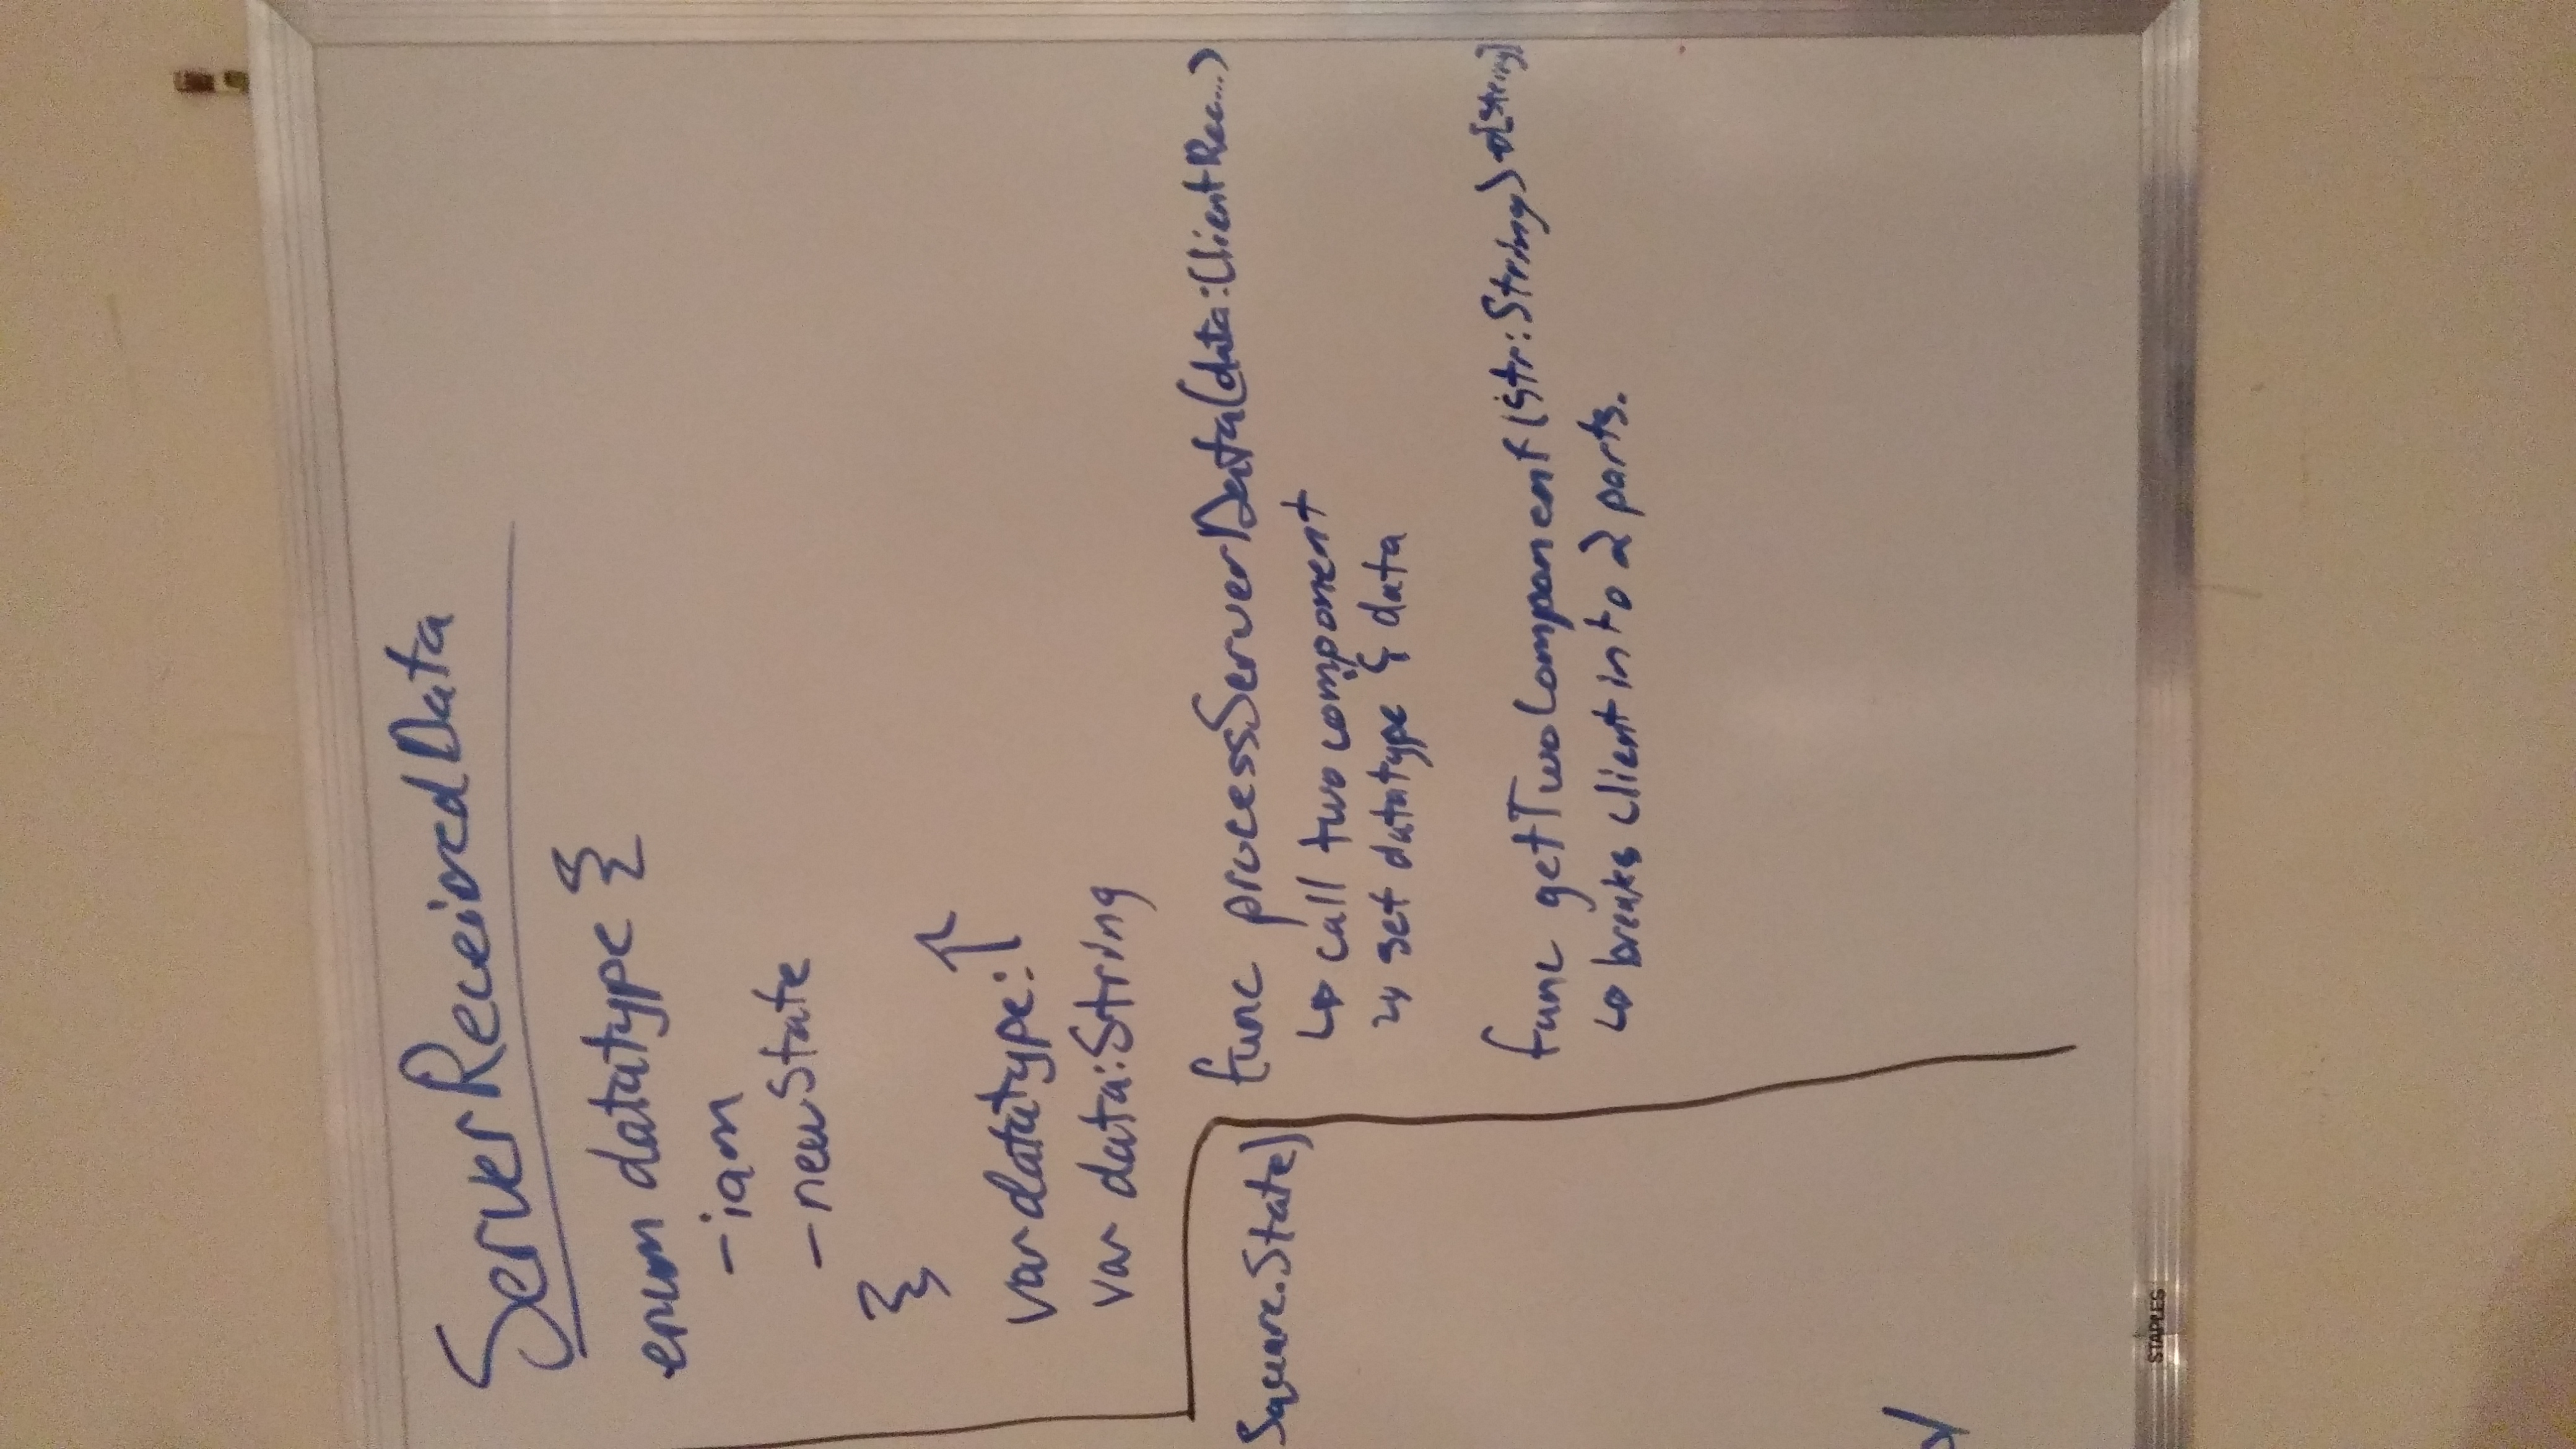 ServerReceivedData
enum datatype {
-iam
-newState
}
var datatype:↑
var data:String
func processServerData(data:ClientRec...)
↳ call two component
↳ set datatype & data
func getTwoComponent(str:String)→[String]
↳ breaks client into 2 parts.
Square.State)
STAPLES